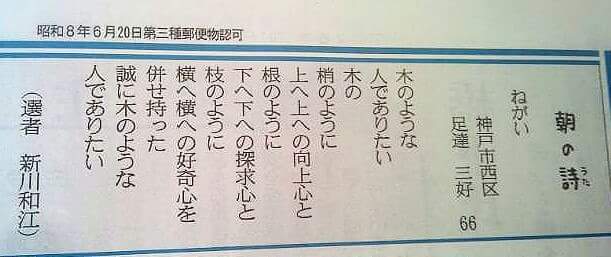 昭和8年6月20日第三種郵便物認可
朝の詩
うた
ねがい
神戸市西区
足達 三好 66
木のような
人でありたい
木の
梢のように
上へ上への向上心と
根のように
下へ下への探求心と
枝のように
横へ横への好奇心を
併せ持った
誠に木のような
人でありたい
(選者 新川和江)